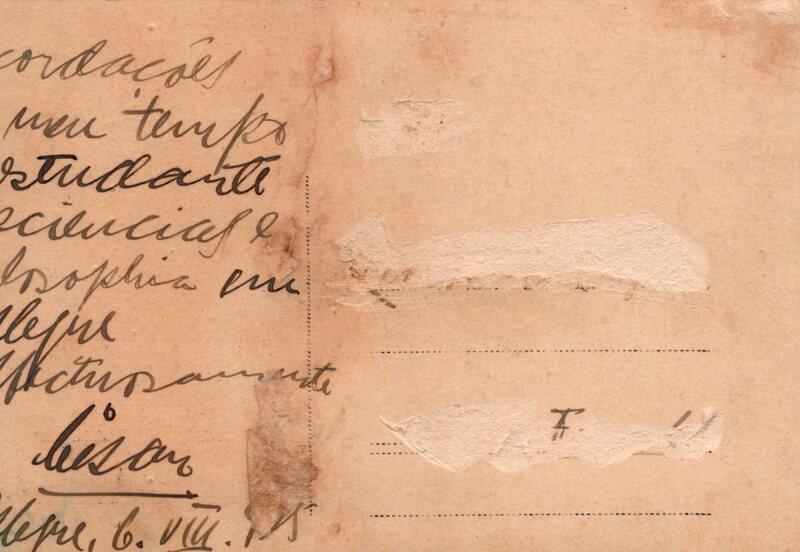 cordações
meu tempo
estudante
sciencias e
losophia em
legre
ffectuosamente
Cesar
legre, 6. VIII. 915